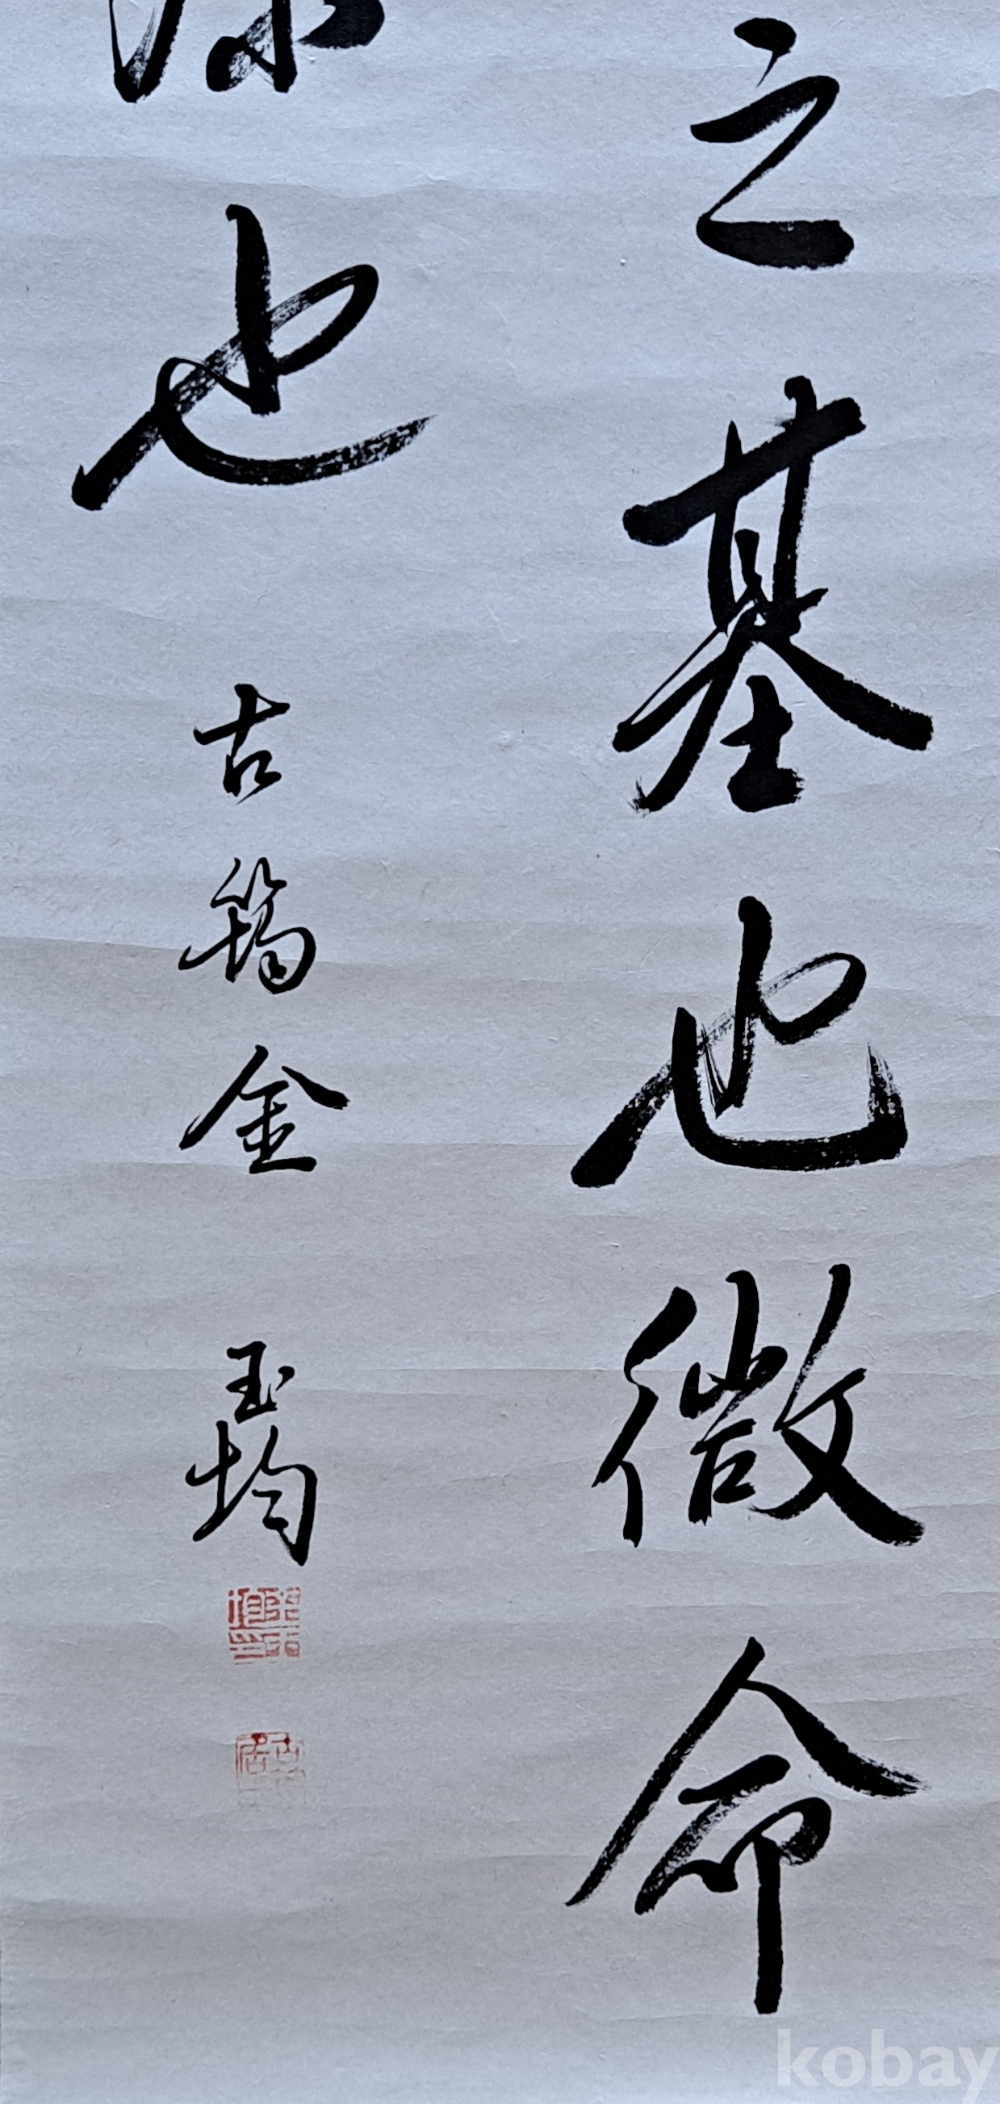 之基也微命
也
古筠金玉均
kobay